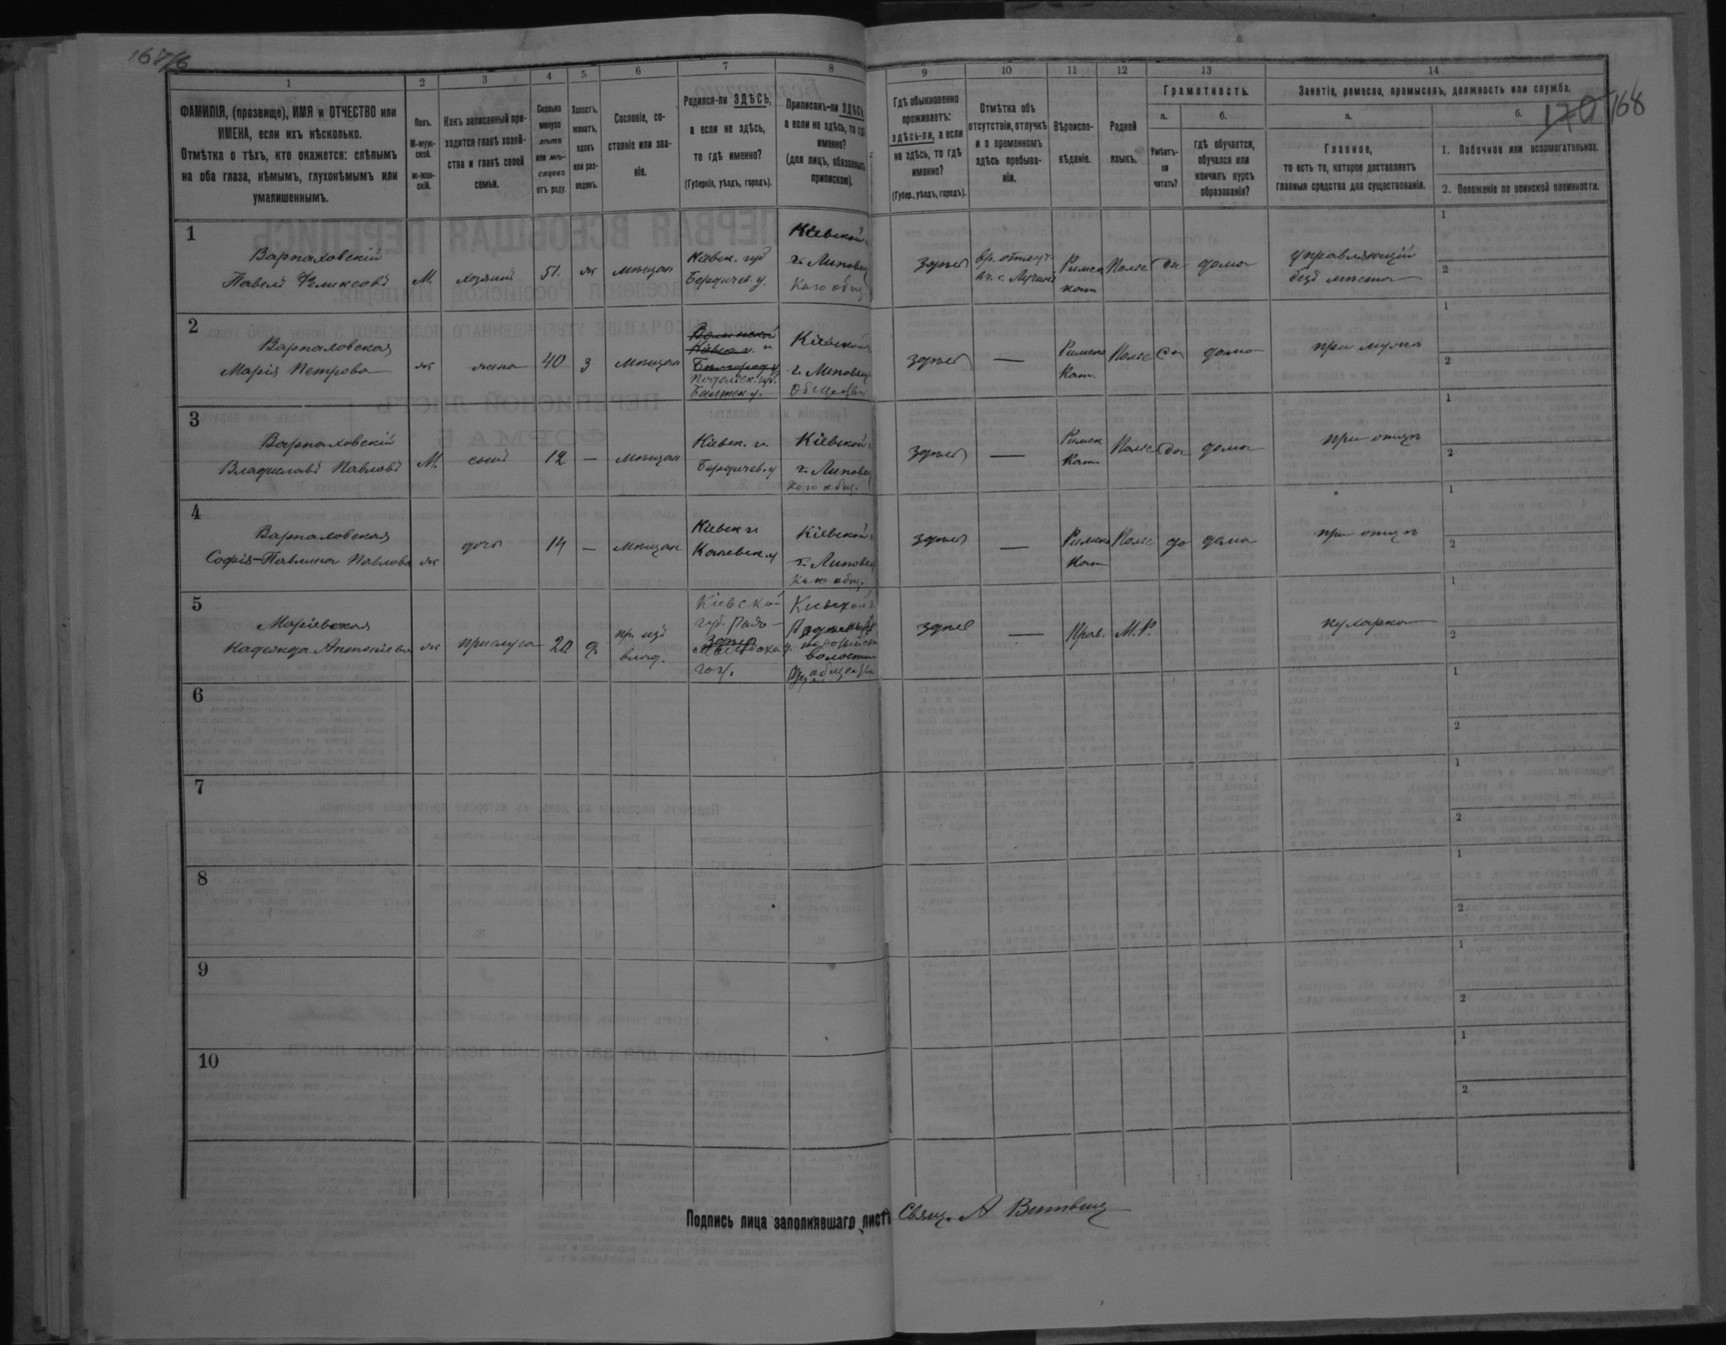 167/6
1 2 3 4 5 6 7 8 9 10 11 12 13 14
ФАМИЛІЯ, (прозвище), ИМЯ и ОТЧЕСТВО или
ИМЕНА, если ихъ нѣсколько.
Отмѣтка о тѣхъ, кто окажется: слѣпымъ
на оба глаза, нѣмымъ, глухонѣмымъ или
умалишеннымъ.
Полъ.
М-муж-
ской.
ж-жен-
скій.
Какъ записанный при-
ходится главѣ хозяй-
ства и главѣ своей
семьи.
Сколько
минуло
лѣтъ
или мѣ-
сяцевъ
отъ роду.
Холостъ,
женатъ,
вдовъ
или раз-
веденъ.
Сословіе, со-
стояніе или зва-
ніе.
Родился-ли ЗДѢСЬ,
а если не здѣсь,
то гдѣ именно?
(Губернія, уѣздъ, городъ).
Приписанъ-ли ЗДѢСЬ,
а если не здѣсь, то гдѣ
именно?
(для лицъ, обязанныхъ
припискою).
Гдѣ обыкновенно
проживаетъ:
здѣсь-ли, а если
не здѣсь, то гдѣ
именно?
(Губер., уѣздъ, городъ).
Отмѣтка объ
отсутствіи, отлучкѣ
и о временномъ
здѣсь пребыва-
ніи.
Вѣроиспо-
вѣданіе.
Родной
языкъ.
Грамотность.
а.
Умѣетъ-
ли
читать?
б.
гдѣ обучается,
обучался или
кончилъ курсъ
образованія?
Занятіе, ремесло, промыселъ, должность или служба.
а.
Главное,
то есть то, которое доставляетъ
главныя средства для существованія.
б.
1. Побочное или вспомогательное.
2. Положеніе по воинской повинности.
170 168
1
Варпаховскій
Павелъ Феликсовъ
М.
хозяинъ
51.
ж
мѣщан
Кіевск. губ
Бердичев. у.
Кіевской
г. Липовец
каго общ
здѣсь
вр. отлуч
Римск
кат
Полс
да
дома
управляющій
безъ мѣста
1
2
2
Варпаховская
Марія Петрова
ж
жена
40
з
мѣщан
Подольск. губ.
Балтск у.
Кіевской
г. Липовец
Обществ
здѣсь
—
Римск
Кат
Полс
да
дома
при мужѣ
1
2
3
Варпаховскій
Владиславъ Павловъ
М.
сынъ
12
—
мѣщан
Кіевск. г.
Бердичев. у
Кіевской
г. Липовец
каго общ.
здѣсь
—
Римск
Кат
Полс
да
дома
при отцѣ
1
2
4
Варпаховская
Софія-Павлина Павлова
ж
дочь
14
—
мѣщан
Кіевск г.
Каневск у
Кіевской
г. Липовец
каго общ.
здѣсь
—
Римск
Кат
Полс
да
дома
при отцѣ
1
2
5
Маріевская
Надежда Антоніева
ж
прислуга
20
д
кр. изъ
влад.
Кіевской
губ. Радо-
Кіевской
волости
общества
здѣсь
—
Прав.
М.Р.
кухарка
1
2
6
1
2
7
1
2
8
1
2
9
1
2
10
1
2
Подпись лица заполнявшаго листъ Свящ. А